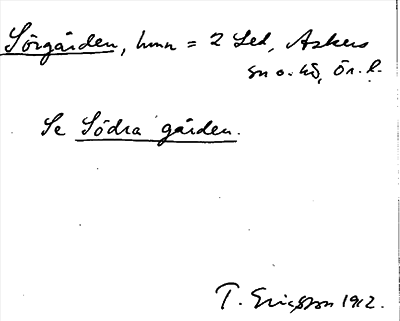 Sörgården, hmn = 2 Led, Askers
sn o. hd, Ör. l.
Se Södra gården.
T. Ericsson 1912.